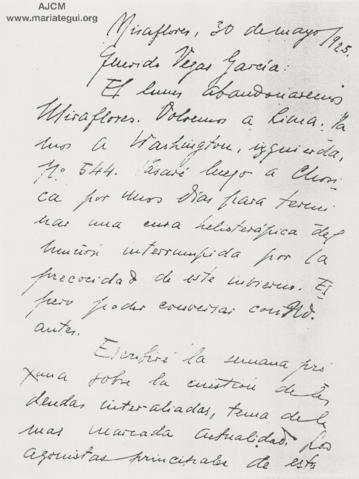 AJCM
www.mariategui.org
Miraflores, 30 de mayo 1925.
Querido Vegas García:
El lunes abandonaremos
Miraflores. Volvemos a Lima. Va
mos a Washington, izquierda,
Nº 544. Pasaré luego a Chosi
ca por unos días para termi
nar una cura helioterápica del
muñón interrumpida por la
precocidad de este invierno. Es
pero poder conversar con Ud.
antes.
Escribiré la semana pró
xima sobre la cuestión de las
deudas interaliadas, tema de la
mas marcada actualidad. Los
agonistas principales de esta